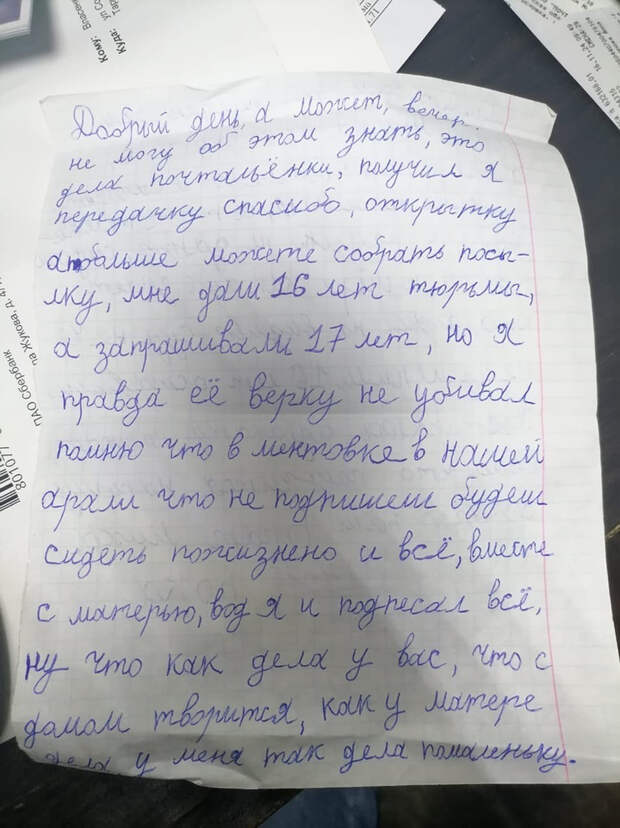 Кому: Власен
Куда:
ул Со
Тара
71
16.11.24
па Жукова, д. 4
ПАО Сбербанк
801077
Добрый день, а может, вечер.
не могу об этом знать, это
дела почтальёнки, получил я
передачку спасибо, открытку
а больше можете собрать посы-
лку, мне дали 16 лет тюрьмы,
а запрашивали 17 лет, но я
правда её верку не убивал
помню что в ментовке в нашей
арали что не подпишеш будеш
сидеть пожизнено и всё, вместе
с матерью, вод я и подпесал всё,
ну что как дела у вас, что с
домом творится, как у матере
дела, у меня так дела помаленьку.